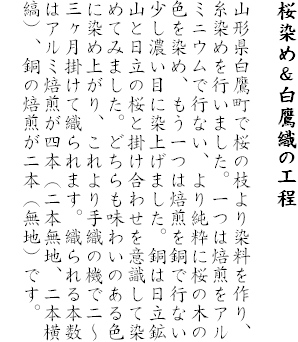 桜染め＆白鷹織の工程
山形県白鷹町で桜の枝より染料を作り、
糸染めを行いました。一つは焙煎をアル
ミニウムで行ない、より純粋に桜の木の
色を染め、もう一つは焙煎を銅で行ない
少し濃い目に染上げました。銅は日立鉱
山と日立の桜と掛け合わせを意識して染
めてみました。どちらも味わいのある色
に染め上がり、これより手織の機で二〜
三ヶ月掛けて織られます。織られる本数
はアルミ焙煎が四本（二本無地、二本横
縞）、銅の焙煎が二本（無地）です。